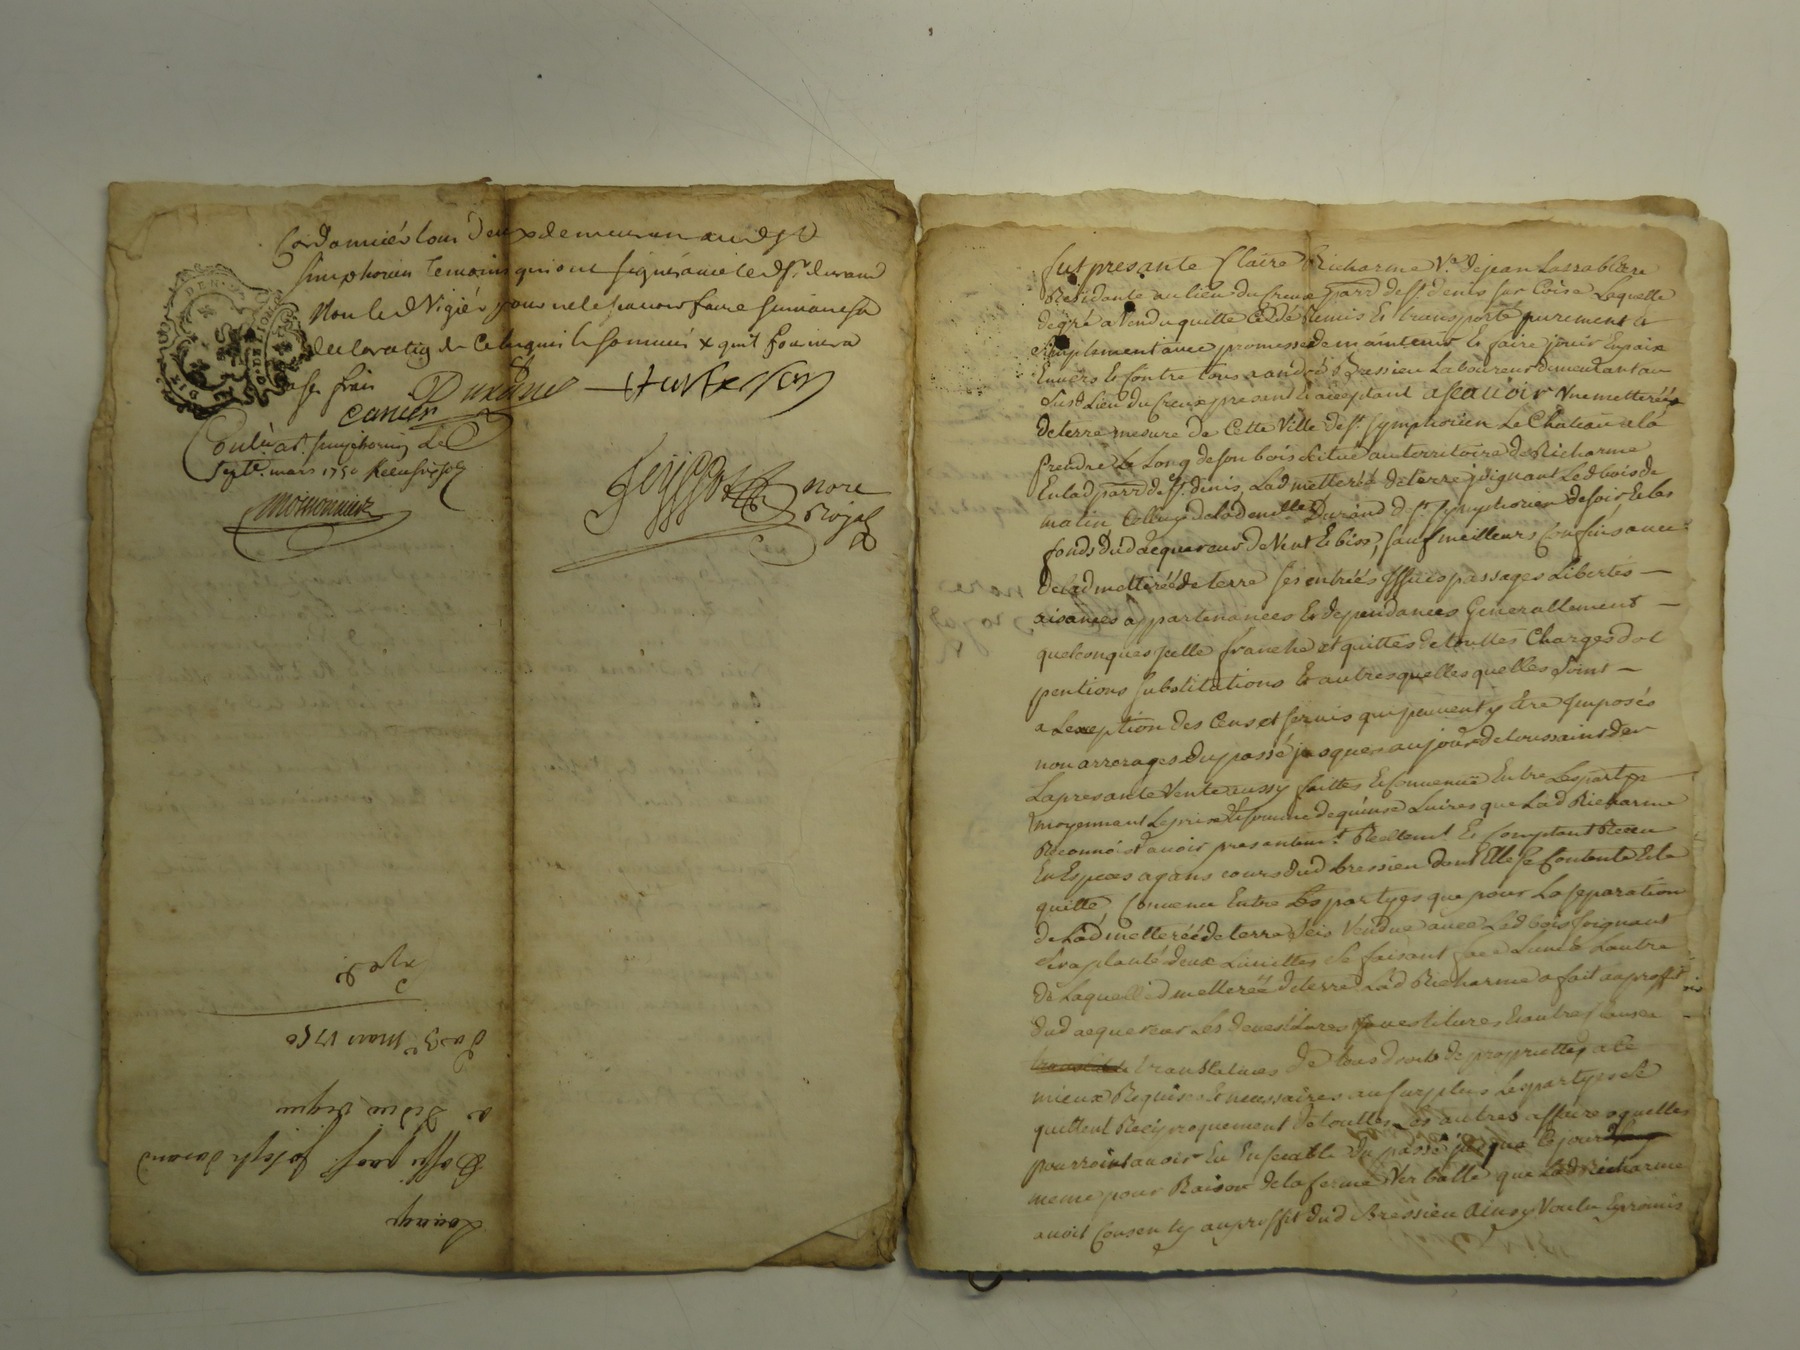 Cordonnier tous deux demeurant audt St
Simphorien temoins qui ont signé avec led Sr durand
Non led Vigier pour ne le sçavoir faire suivant sa
declaration de ce enquis & sommé & qu'il fournira
a ses frais
Durand
cancer
Conlé. a St. Simphorien le
Sept.e mars 1750 Reçu
nore
Royal
Louage
passé par Sr. Joseph durand
a Vigier
Du 3e mars 1750
Exped.
fut presante Claire Richarme Ve. de jean Lassablere
Residante au lieu du Creux parr de St. denis sur Coise Laquelle
de gré a Vendu quitté Cedé Remis Et transporté purement Et
simplement avec promesse de maintenir Et faire jouir En paix
Envers Et Contre tous a andré Bressieu Laboureur demeurant au
susd. Lieu du Creux present Et acceptant ascavoir Une metterée
de terre mesure de Cette Ville de St. Symphorien Le Chateau a la
prendre Le Long de son bois scitué au territoire de Richarme
En lad parr de St. denis, Lad metterée de terre joignant Led bois de
matin Celluy de la demlle Durand de St. Symphorien de soir Et les
fonds dud acquereur de Vent Et bize, sauf meilleurs Confins avec
de lad metterée de terre ses entrées Issues passages Libertés —
aisances appartenances Et dependances Generallement —
quelconques icelle franche et quitte de touttes Charges dot
pentions substitutions Et autres quelles quelles soint —
a Lexeption des Cens et servis qui peuvent y Etre Imposés
non arrerages du passé jusques au jour de toussaint der
La presante Vente aussy faitte Et Convenue Entre Les partyes
moyennant Le prix Et somme de quinse Livres que Lad Richarme
Reconnoit avoir presantemt. Reellemt Et Comptant Receu
En Especes ayans cours dud bressieu dont Elle se Contente Et le
quitte, Convenu Entre Les partyes que pour La separation
de Lad metterée de terre icis Vendue avec Led bois joignant
sera planté deux Limittes se faisant face Lune a Lautre
De Laquelle d metterée de terre Lad Richarme a fait au proffit
dud acquereur Les devestitures Investitures Et autres Clauses
translatives de tous droits de proprietté a ce
mieux Requises Et necessaires au surplus Les partyes se
quittent Reciproquement de touttes Les autres affaire quelles
pourroint avoir Eu Ensemble du passé jusque a ce jour
meme pour Raison de la ferme Verballe que Lad Richarme
avoit Consenty au proffit dud Bressieu Ainsy Voulu Et promis